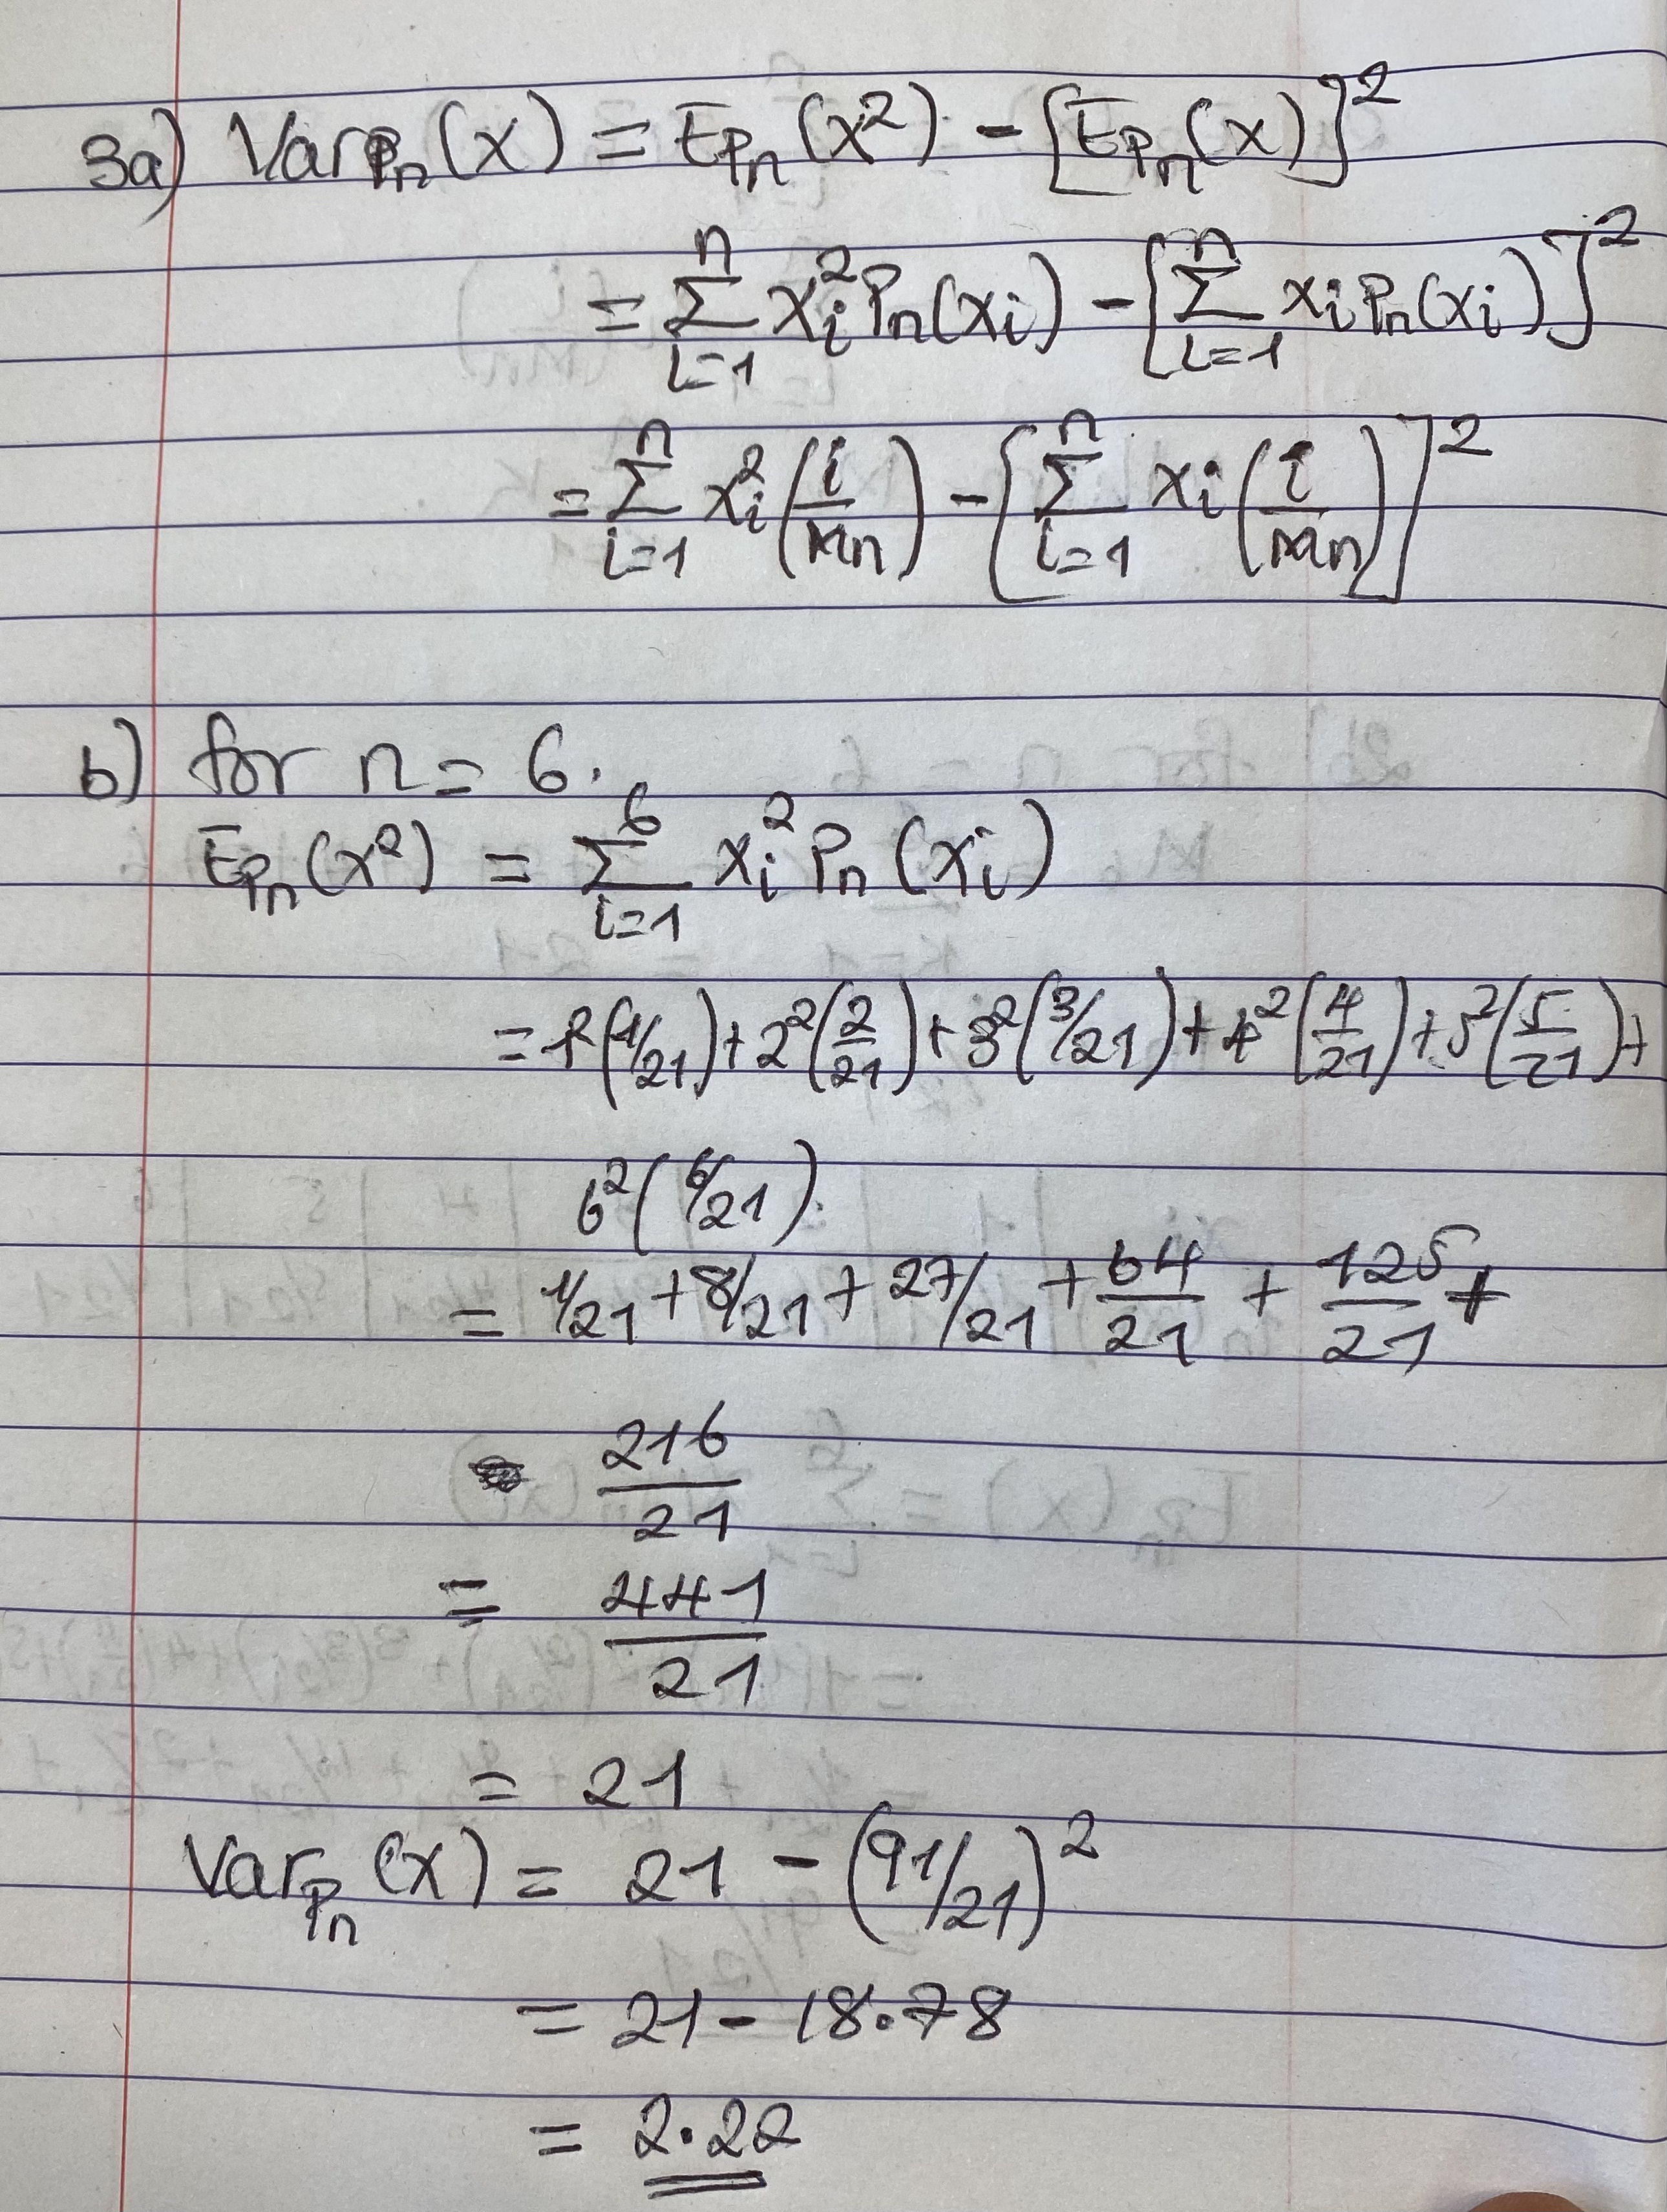 3a) Var_{P_n}(X) = E_{P_n}(X^2) - [E_{P_n}(X)]^2
= \sum_{i=1}^{n} x_i^2 P_n(x_i) - [\sum_{i=1}^{n} x_i P_n(x_i)]^2
= \sum_{i=1}^{n} x_i^2 (i/m_n) - [\sum_{i=1}^{n} x_i (i/m_n)]^2
b) for n = 6.
E_{P_n}(X^2) = \sum_{i=1}^{6} x_i^2 P_n(x_i)
= 1^2(1/21) + 2^2(2/21) + 3^2(3/21) + 4^2(4/21) + 5^2(5/21) +
6^2(6/21).
= 1/21 + 8/21 + 27/21 + 64/21 + 125/21 +
216/21
= 441/21
= 21
Var_{P_n}(X) = 21 - (91/21)^2
= 21 - 18.78
= 2.22